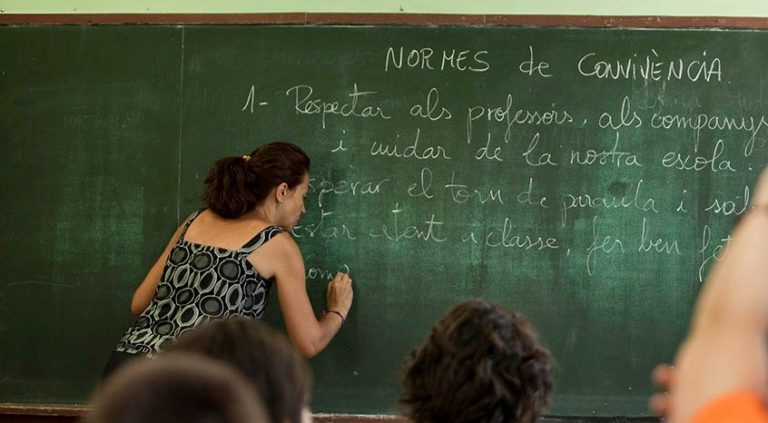 NORMES de CONVIVÈNCIA
1- Respectar als professors, als companys
i cuidar de la nostra escola.
el torn de paraula i
estar atent a classe, fer ben